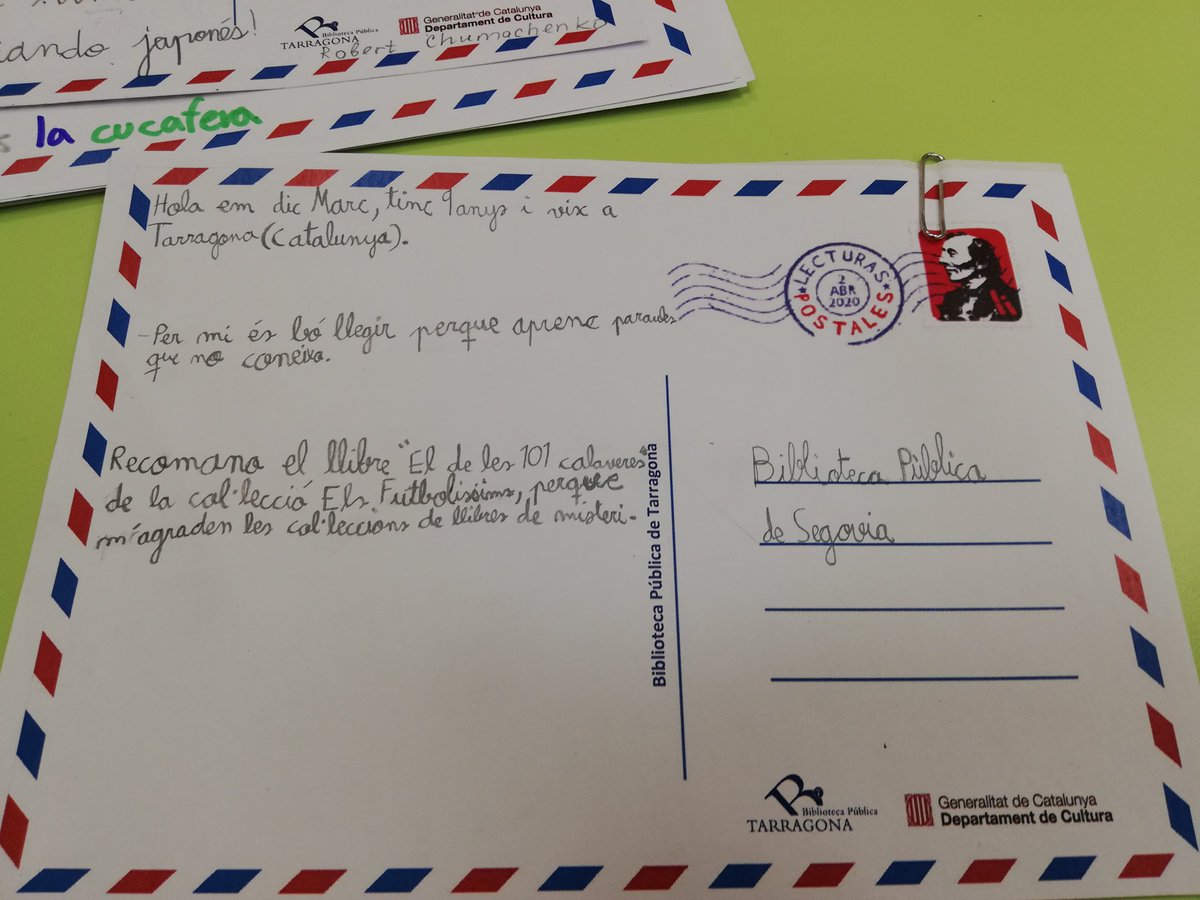 iando japonés!
Biblioteca Pública
TARRAGONA
Generalitat de Catalunya
Departament de Cultura
Robert Chumachenko
la cucafera
Hola em dic Marc, tinc 9 anys i vix a
Tarragona (Catalunya).
-Per mi és bó llegir perque aprenc paraules
que no coneixo.
Recomano el llibre "El de les 101 calaveres"
de la col·lecció Els Futbolíssims, perque
m'agraden les col·leccions de llibres de misteri.
LECTURAS
2
ABR
2020
POSTALES
Biblioteca Pública de Tarragona
Biblioteca Pública
de Segovia
Biblioteca Pública
TARRAGONA
Generalitat de Catalunya
Departament de Cultura